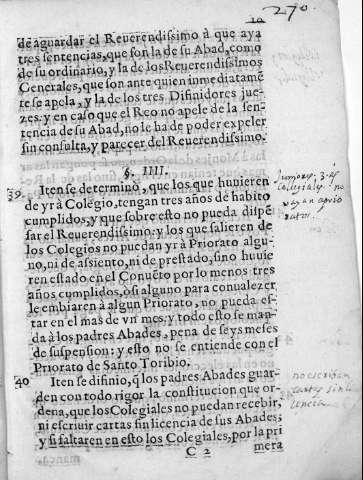 270.
10
de aguardar el Reuerendissimo à que aya
tres sentencias, que son la de su Abad, como
de su ordinario, y la de los Reuerendissimos
Generales, que son ante quien inmediatamẽ
te se apela, y la de los tres Difinidores jue-
zes. y en caso que el Reo no apele de la sen-
tencia de su Abad, no le ha de poder expeler
sin consulta, y parecer del Reuerendissimo.
§. IIII.
39 Iten se determinò, que los que huuieren
de yr à Colegio, tengan tres años de habito
cumplidos, y que sobre esto no pueda dispẽ
sar el Reuerendissimo: y los que salieren de
los Colegios no puedan yr à Priorato algu-
no, ni de assiento, ni de prestado, sino huuie
ren estado en el Conuẽto por lo menos tres
años cumplidos, ò si alguno para conualezer
le embiaren à algun Priorato, no pueda es-
tar en el mas de vn mes, y todo esto se man-
da à los padres Abades, pena de seys meses
de suspension: y esto no se entiende con el
Priorato de Santo Toribio.
40 Iten se difinio, q̃ los padres Abades guar-
den con todo rigor la constitucion que or-
dena, que los Colegiales no puedan recebir,
ni escriuir cartas sin licencia de sus Abades,
y si faltaren en esto los Colegiales, por la pri
C 2 mera
colegiales no
no escriban
cartas sin li
cencia